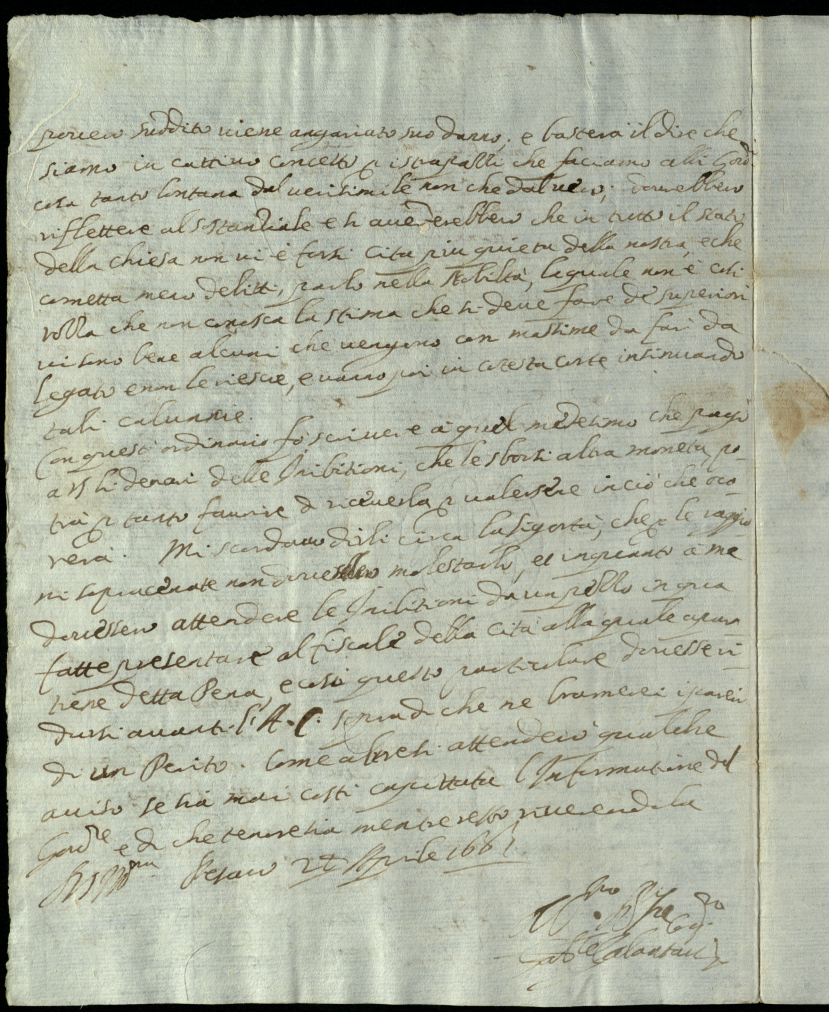 povero suddito viene angariato suo danno; e basterà il dire che
siamo in cattivo concetto p istrapazzi che facciamo alli Gov.ri
cosa tanto lontana dal verisimile non che dal vero; dovrebbero
riflettere al sostantiale e si avederebbero che in tutto il stato
della chiesa non vi è forsi Cità più quieta della nostra, e che
cometta meno delitti, parlo nella Nobiltà, la quale non è così
rozza che non conosca la stima che si deve fare de superiori
vi sono bene alcuni che vengono con massime da farsi da
legato e non le riesce, e vanno poi in cotesta corte insinuando
tali calunnie.
Con quest'ordinario fò scrivere à quel medesimo che pagò
a VS li denari delle Inibitioni, che le sborsi altra moneta, po-
trà p tanto favorire di riceverla p valersene in ciò che oco-
rerà. Mi scordavo dirli circa la sigortà, che p le raggio
ni sopracenate non dovessero molestarlo, et inquanto à me
dovessero attendere le Inibitioni da un pezzo in qua
fatte presentare al fiscale della Cità alla quale apar
tiene detta Pena, e così questo particolare dovesse ri-
dursi avanti l'A.C. sopra di che ne bramerei i pareri
di un Perito. Come altresì attenderò qualche
aviso se sia mai costì capittata l'Informatione del
Gov.re e di che tenore sia mentre resto riverendola
Pesaro 24 Aprile 1661